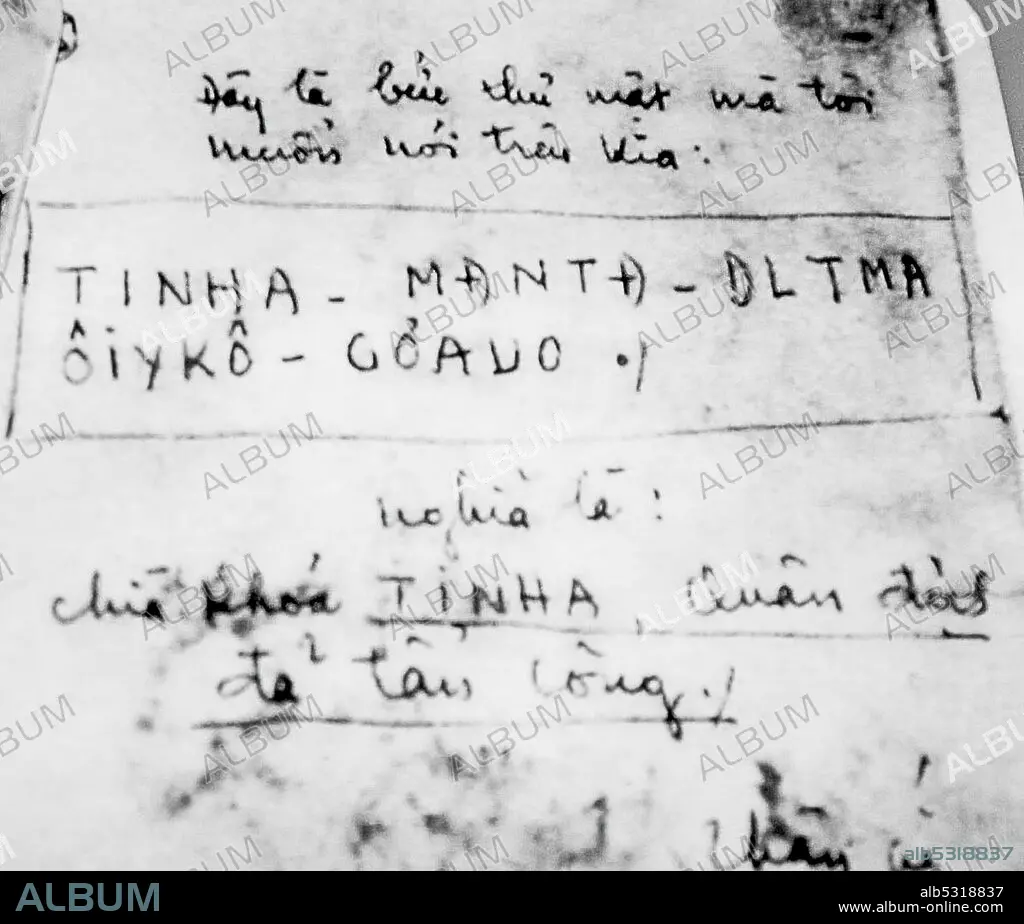 Đây là bức thư mật mà tôi
muốn nói trên kia:
TINHA - MĐNTĐ - ĐLTMA
ÔiYKÔ - GỞAUO ./
nghĩa là:
chìa khóa TINHA, Quân đội
đả tấn công./
ALBUM
alb5318837
www.album-online.com